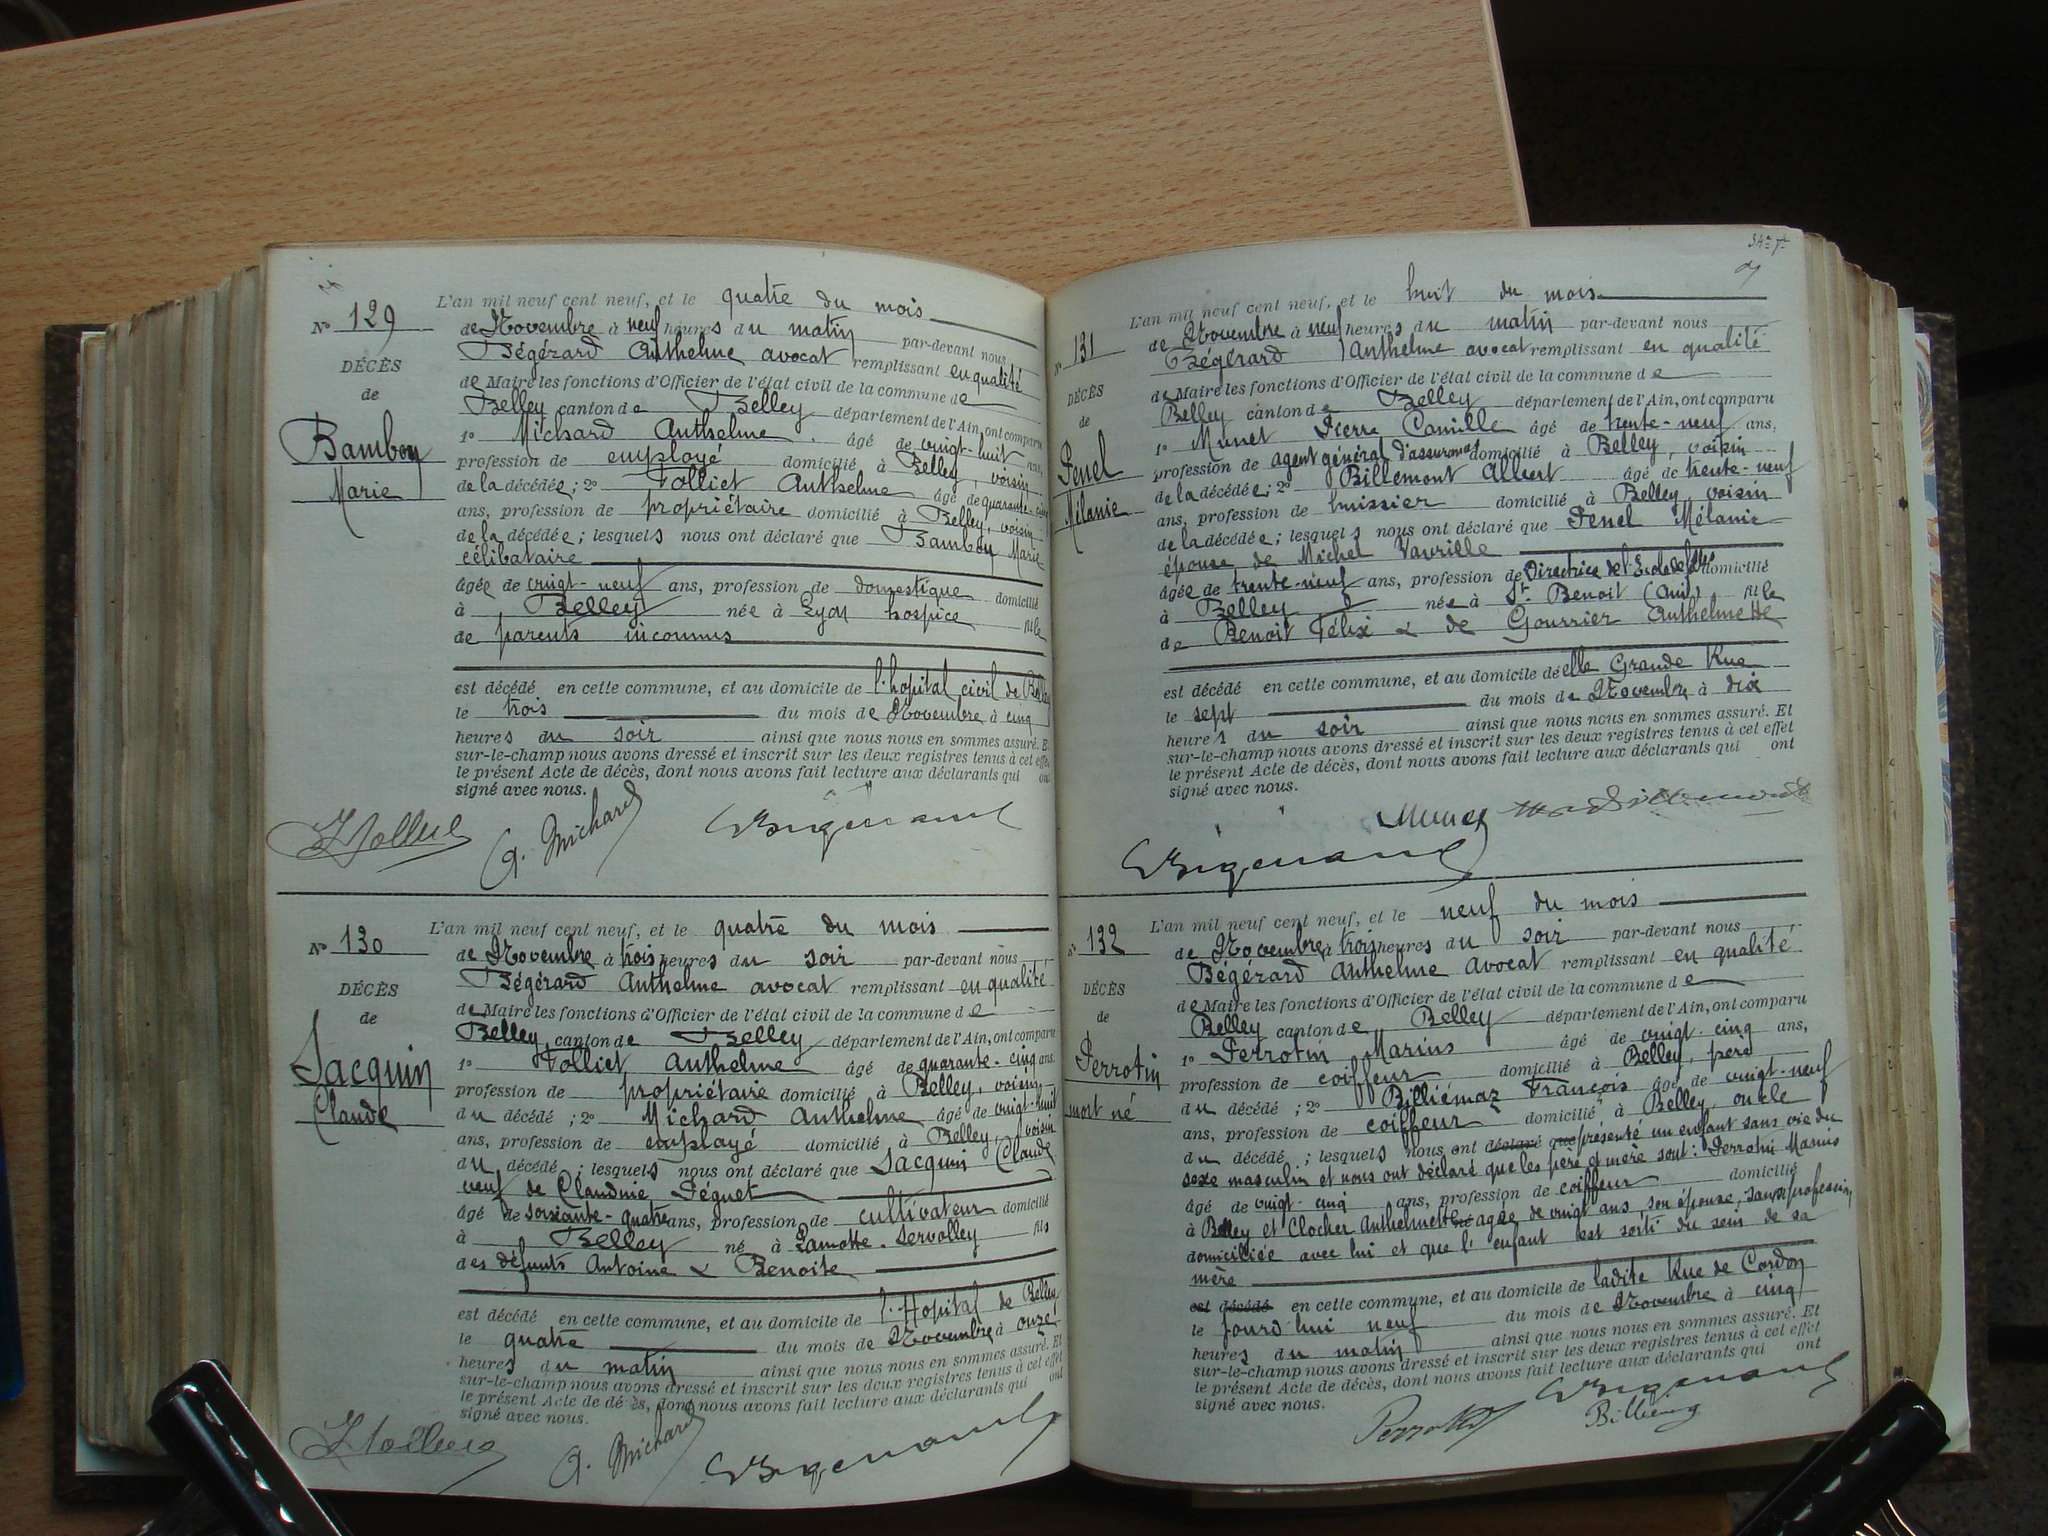 L'an mil neuf cent neuf, et le quatre du mois
No 129
de Novembre à neuf heures du matin par-devant nous
Bégérard Anthelme avocat remplissant en qualité
DÉCÈS
de Maire les fonctions d'Officier de l'état civil de la commune de
de
Belley canton de Belley département de l'Ain, ont comparu
Bambou
1o Michard Anthelme âgé de vingt-huit ans,
profession de employé domicilié à Belley, voisin
Marie
de la décédée; 2o Folliet Anthelme âgé de quarante-cinq
ans, profession de propriétaire domicilié à Belley, voisin
de la décédée; lesquels nous ont déclaré que Bambou Marie
célibataire
âgée de vingt-neuf ans, profession de domestique domicilié
à Belley née à Lyon hospice fille
de parents inconnus
est décédé en cette commune, et au domicile de l'hopital civil de Belley
le trois du mois de Novembre à cinq
heures du soir ainsi que nous nous en sommes assuré. Et
sur-le-champ nous avons dressé et inscrit sur les deux registres tenus à cet effet
le présent Acte de décès, dont nous avons fait lecture aux déclarants qui ont
signé avec nous.
A. Michard
L'an mil neuf cent neuf, et le quatre du mois
No 130
de Novembre à trois heures du soir par-devant nous
Bégérard Anthelme avocat remplissant en qualité
DÉCÈS
de Maire les fonctions d'Officier de l'état civil de la commune de
de
Belley canton de Belley département de l'Ain, ont comparu
Jacquin
1o Folliet Anthelme âgé de quarante-cinq ans
profession de propriétaire domicilié à Belley, voisin
Claude
du décédé; 2o Michard Anthelme âgé de vingt-huit
ans, profession de employé domicilié à Belley, voisin
du décédé; lesquels nous ont déclaré que Jacquin Claude
veuf de Claudine Péguet
âgé de soixante-quatre ans, profession de cultivateur domicilié
à Belley né à Lamotte-Servolley fils
des défunts Antoine & Benoite
est décédé en cette commune, et au domicile de l'Hopital de Belley
le quatre du mois de Novembre à onze
heures du matin ainsi que nous nous en sommes assuré. Et
sur-le-champ nous avons dressé et inscrit sur les deux registres tenus à cet effet
le présent Acte de décès, dont nous avons fait lecture aux déclarants qui ont
signé avec nous.
A. Michard
L'an mil neuf cent neuf, et le huit du mois
No 131
de Novembre à neuf heures du matin par-devant nous
Bégérard Anthelme avocat remplissant en qualité
DÉCÈS
de Maire les fonctions d'Officier de l'état civil de la commune de
de
Belley canton de Belley département de l'Ain, ont comparu
Penel
1o Munet Pierre Camille âgé de trente-neuf ans,
profession de agent général d'assurances domicilié à Belley, voisin
Mélanie
de la décédée; 2o Billemont Albert âgé de trente-neuf
ans, profession de huissier domicilié à Belley, voisin
de la décédée; lesquels nous ont déclaré que Penel Mélanie
épouse de Michel Vavrille
âgée de trente-neuf ans, profession de Directrice de l'Ecole de filles domicilié
à Belley née à St Benoit (Ain) fille
de Benoit Félix & de Gourrier Anthelmette
est décédé en cette commune, et au domicile de elle Grande Rue
le sept du mois de Novembre à dix
heures du soir ainsi que nous nous en sommes assuré. Et
sur-le-champ nous avons dressé et inscrit sur les deux registres tenus à cet effet
le présent Acte de décès, dont nous avons fait lecture aux déclarants qui ont
signé avec nous.
Munet
L'an mil neuf cent neuf, et le neuf du mois
No 132
de Novembre à trois heures du soir par-devant nous
Bégérard Anthelme avocat remplissant en qualité
DÉCÈS
de Maire les fonctions d'Officier de l'état civil de la commune de
de
Belley canton de Belley département de l'Ain, ont comparu
Perrotin
1o Perrotin Marius âgé de vingt-cinq ans,
profession de coiffeur domicilié à Belley, père
mort né
du décédé; 2o Billiémaz François âgé de vingt-neuf
ans, profession de coiffeur domicilié à Belley, oncle
du décédé; lesquels nous ont déclaré que présenté un enfant sans vie du
sexe masculin et nous ont déclaré que les père et mère sont: Perrotin Marius
âgé de vingt-cinq ans, profession de coiffeur domicilié
à Belley et Clocher Anthelmette née agée de vingt ans son épouse, sans profession,
domiciliée avec lui et que l'enfant est sorti du sein de sa
mère
est décédé en cette commune, et au domicile de ladite Rue de Cordon
le jourd'hui neuf du mois de Novembre à cinq
heures du matin ainsi que nous nous en sommes assuré. Et
sur-le-champ nous avons dressé et inscrit sur les deux registres tenus à cet effet
le présent Acte de décès, dont nous avons fait lecture aux déclarants qui ont
signé avec nous.